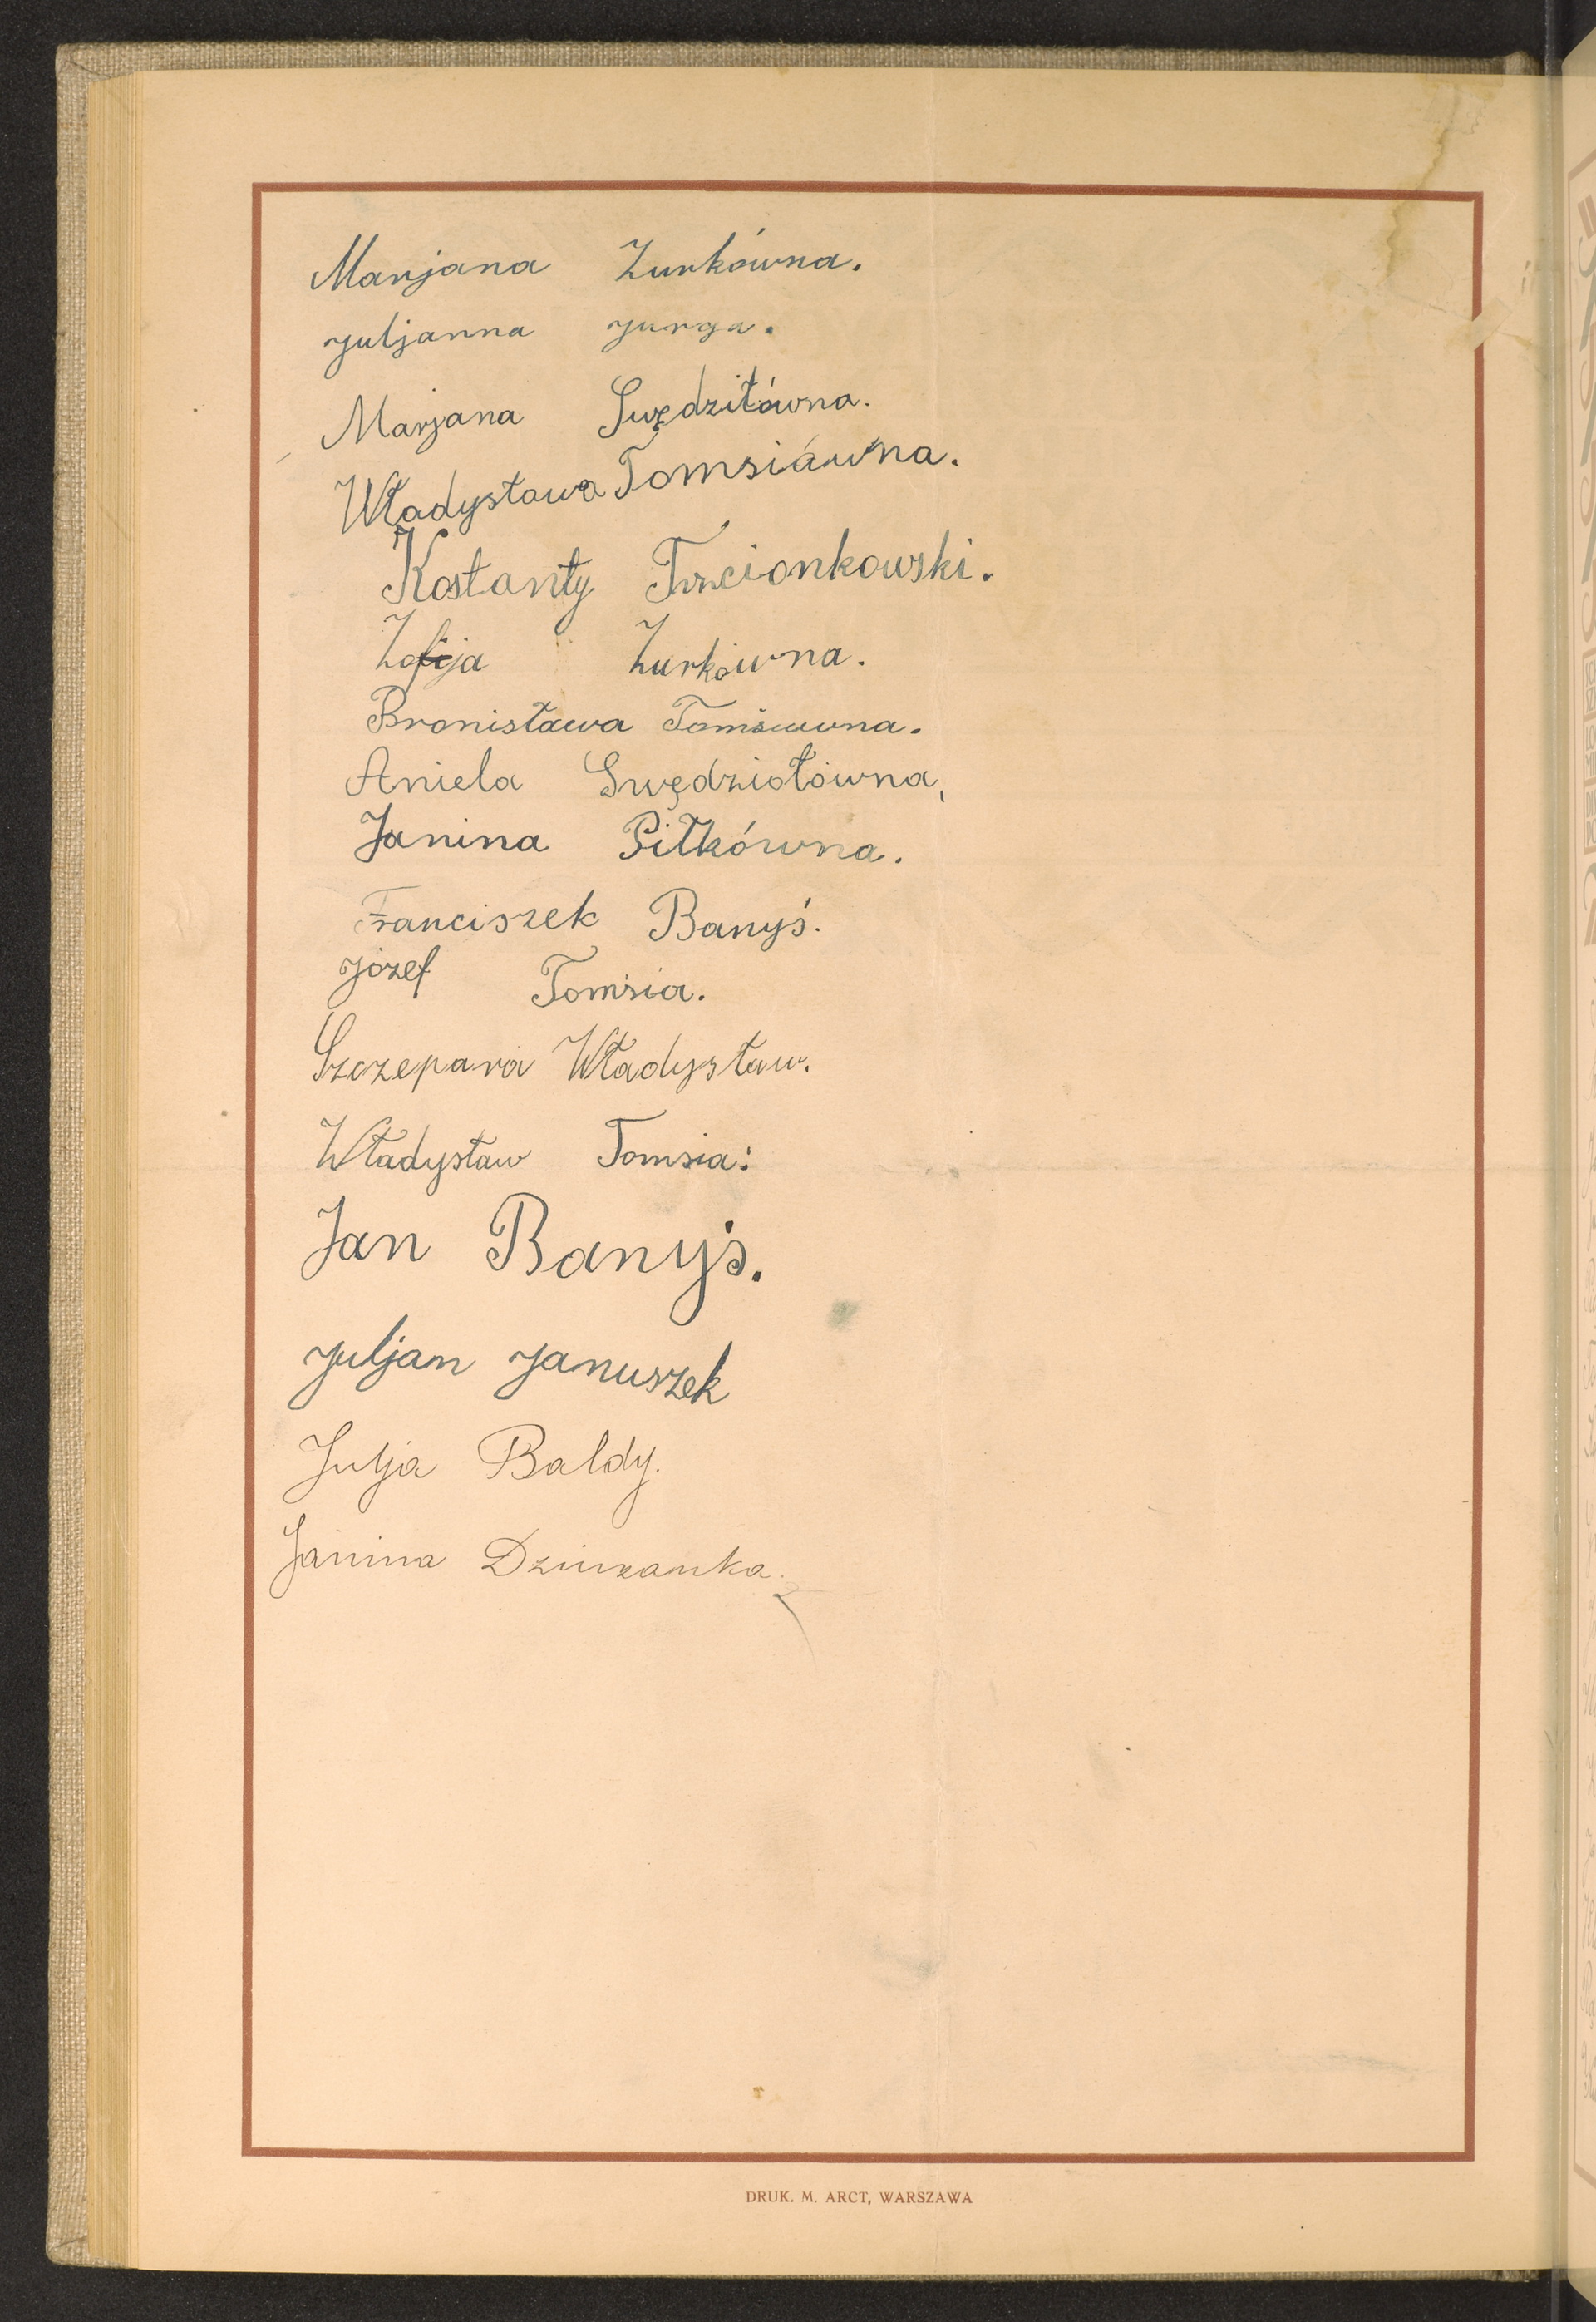 Marjana Żurkówna.
Juljanna Jurga.
Marjana Swędziłówna.
Władysława Tomsiówna.
Kostanty Trzcionkowski.
Zofija Żurkówna.
Bronisława
Aniela Swędziołówna,
Janina Pitkówna.
Franciszek Banyś.
Józef Tomsia.
Szczepara Władysław.
Władysław Tomsia:
Jan Banyś.
Juljan Januszek
Julja Baldy.
Janina
DRUK. M. ARCT, WARSZAWA